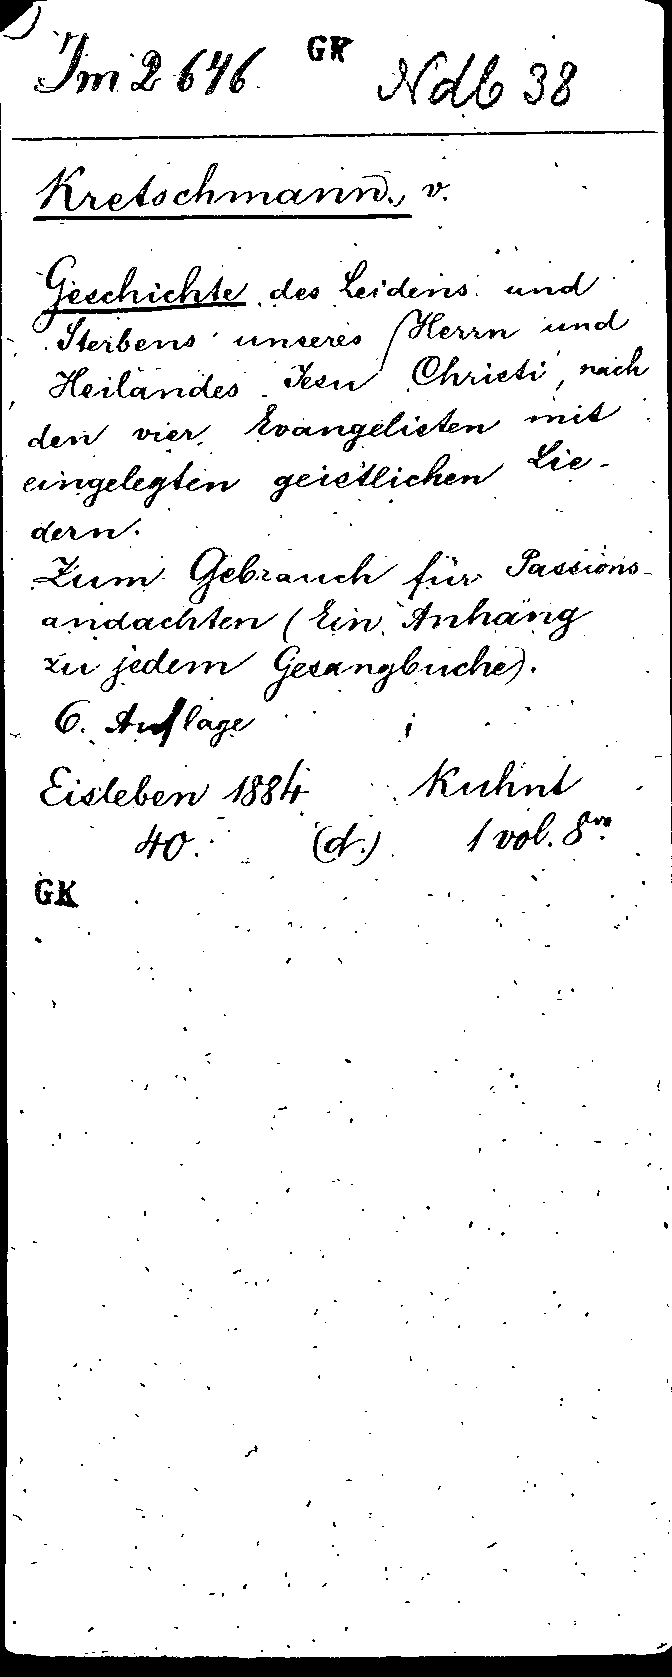 Im 2646 GK Ndb 38
Kretschmann, v.
Geschichte des Leidens und
Sterbens unseres Herrn und
Heilandes Jesu Christi, nach
den vier Evangelisten mit
eingelegten geistlichen Lie-
dern.
Zum Gebrauch für Passions-
andachten (Ein Anhang
zu jedem Gesangbuche).
6. Auflage
Eisleben 1884 Kuhnt
40. (d.) 1 vol. 8vo.
GK